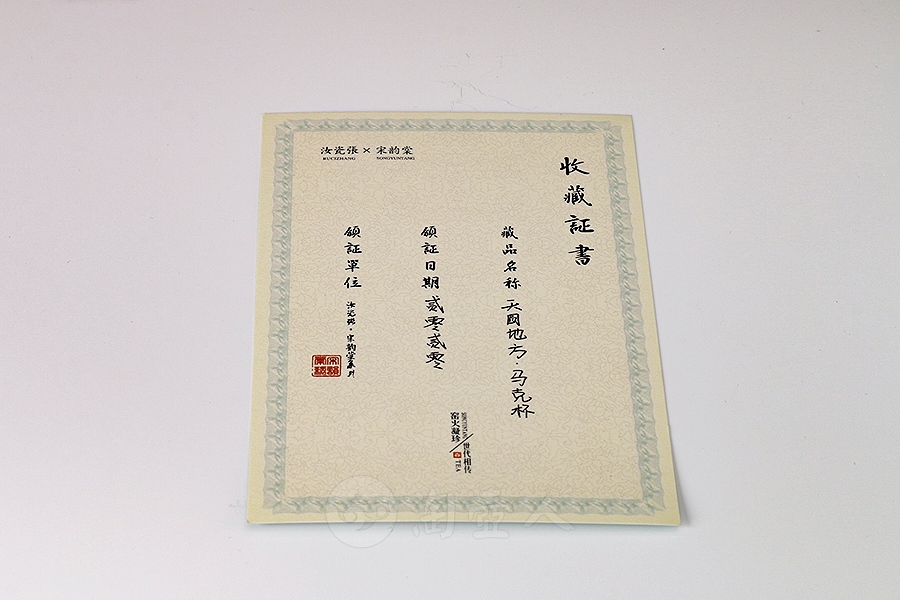 汝瓷張 × 宋韵棠
RUCIZHANG SONGYUNTANG
收藏証書
藏品名称 天圆地方 马克杯
領証日期 贰零贰零
領証單位 汝瓷张·宋韵棠系列
窑火凝珍/世代相传
TEA
陶亚人